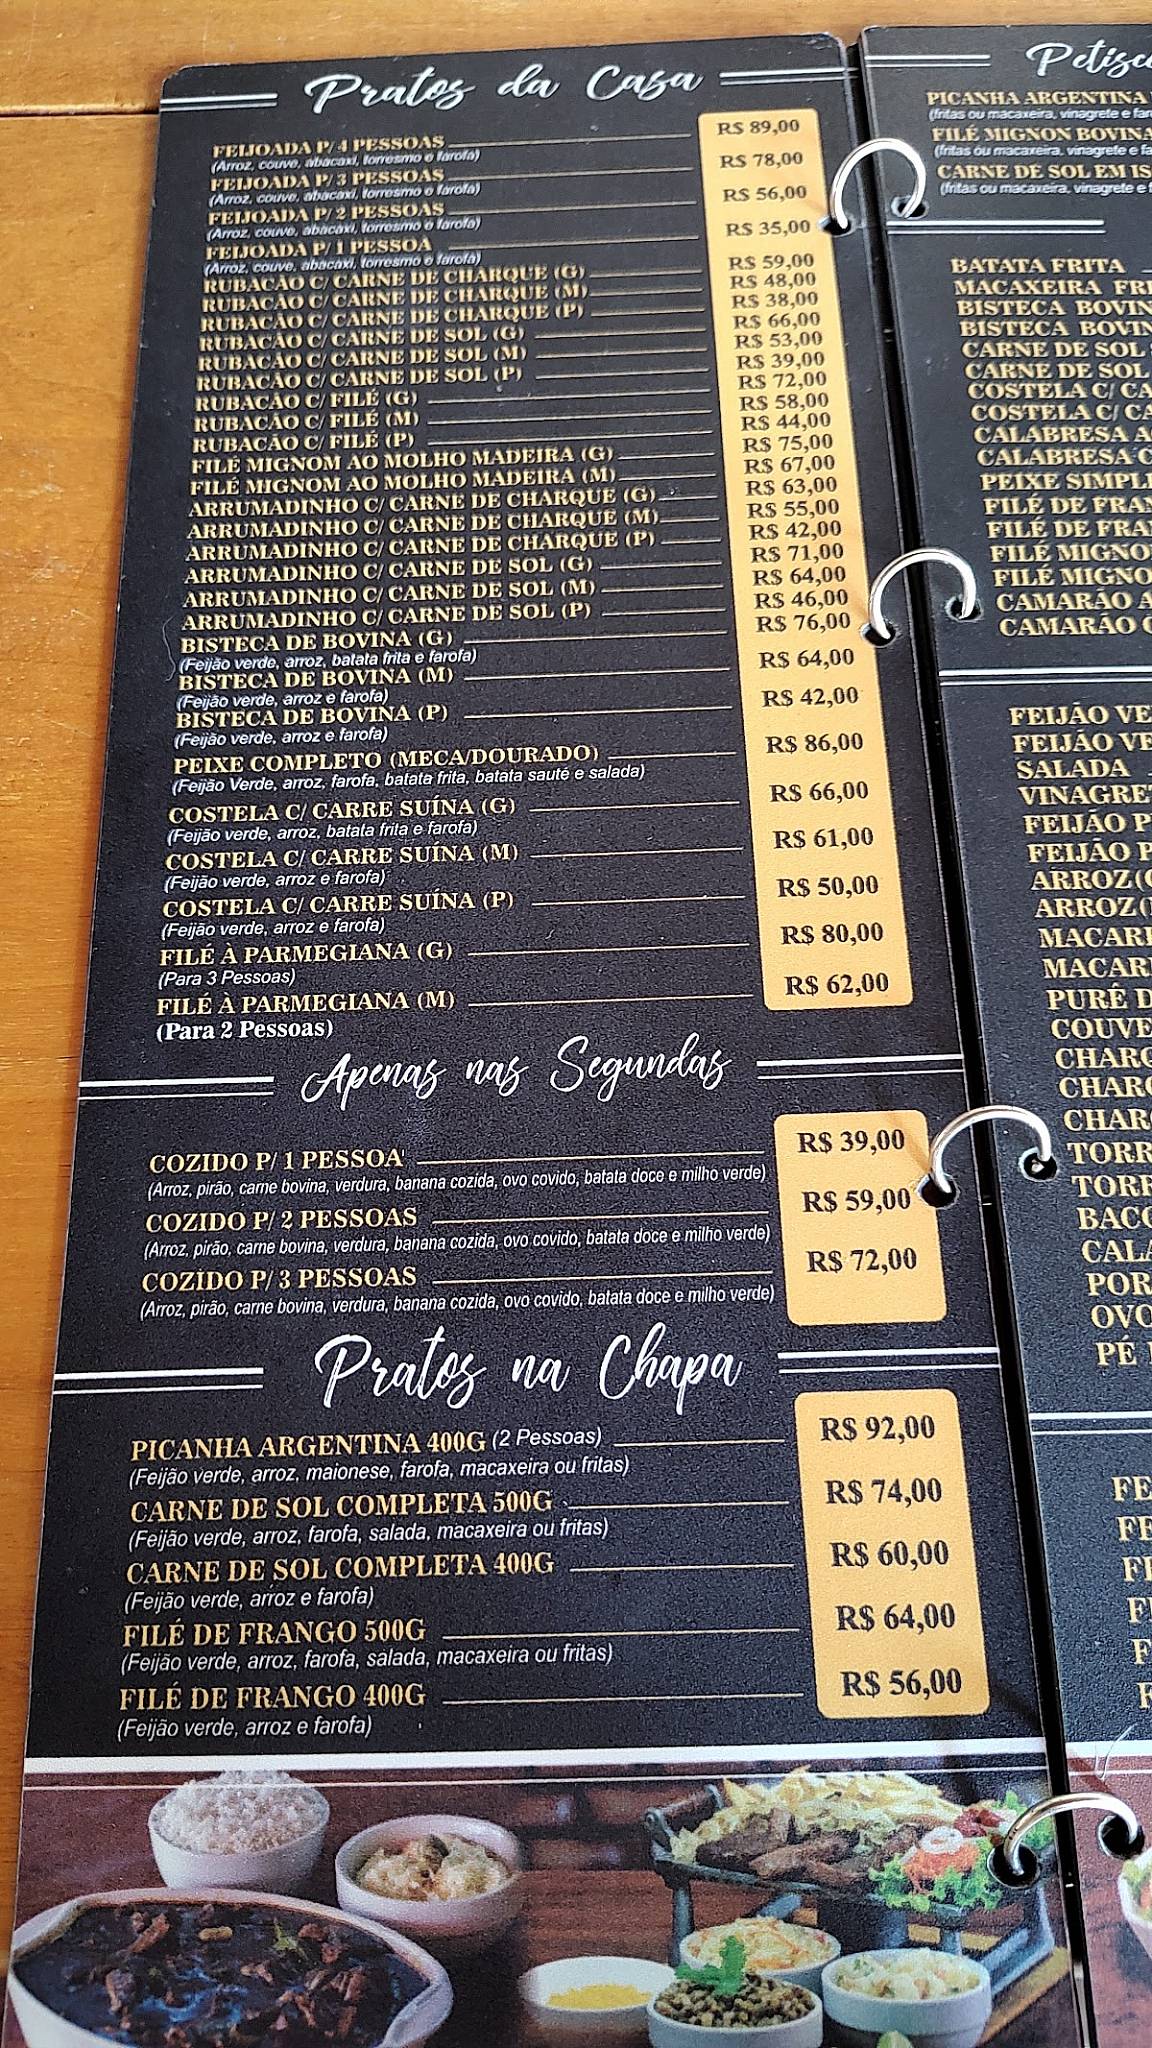 Pratos da Casa
FEIJOADA P/ 4 PESSOAS R$ 89,00
(Arroz, couve, abacaxi, torresmo e farofa)
FEIJOADA P/ 3 PESSOAS R$ 78,00
(Arroz, couve, abacaxi, torresmo e farofa)
FEIJOADA P/ 2 PESSOAS R$ 56,00
(Arroz, couve, abacaxi, torresmo e farofa)
FEIJOADA P/ 1 PESSOA R$ 35,00
(Arroz, couve, abacaxi, torresmo e farofa)
RUBACÃO C/ CARNE DE CHARQUE (G) R$ 59,00
RUBACÃO C/ CARNE DE CHARQUE (M) R$ 48,00
RUBACÃO C/ CARNE DE CHARQUE (P) R$ 38,00
RUBACÃO C/ CARNE DE SOL (G) R$ 66,00
RUBACÃO C/ CARNE DE SOL (M) R$ 53,00
RUBACÃO C/ CARNE DE SOL (P) R$ 39,00
RUBACÃO C/ FILÉ (G) R$ 72,00
RUBACÃO C/ FILÉ (M) R$ 58,00
RUBACÃO C/ FILÉ (P) R$ 44,00
FILÉ MIGNOM AO MOLHO MADEIRA (G) R$ 75,00
FILÉ MIGNOM AO MOLHO MADEIRA (M) R$ 67,00
ARRUMADINHO C/ CARNE DE CHARQUE (G) R$ 63,00
ARRUMADINHO C/ CARNE DE CHARQUE (M) R$ 55,00
ARRUMADINHO C/ CARNE DE CHARQUE (P) R$ 42,00
ARRUMADINHO C/ CARNE DE SOL (G) R$ 71,00
ARRUMADINHO C/ CARNE DE SOL (M) R$ 64,00
ARRUMADINHO C/ CARNE DE SOL (P) R$ 46,00
BISTECA DE BOVINA (G) R$ 76,00
(Feijão verde, arroz, batata frita e farofa)
BISTECA DE BOVINA (M) R$ 64,00
(Feijão verde, arroz e farofa)
BISTECA DE BOVINA (P) R$ 42,00
(Feijão verde, arroz e farofa)
PEIXE COMPLETO (MECA/DOURADO) R$ 86,00
(Feijão Verde, arroz, farofa, batata frita, batata sauté e salada)
COSTELA C/ CARRE SUÍNA (G) R$ 66,00
(Feijão verde, arroz, batata frita e farofa)
COSTELA C/ CARRE SUÍNA (M) R$ 61,00
(Feijão verde, arroz e farofa)
COSTELA C/ CARRE SUÍNA (P) R$ 50,00
(Feijão verde, arroz e farofa)
FILÉ À PARMEGIANA (G) R$ 80,00
(Para 3 Pessoas)
FILÉ À PARMEGIANA (M) R$ 62,00
(Para 2 Pessoas)
Apenas nas Segundas
COZIDO P/ 1 PESSOA R$ 39,00
(Arroz, pirão, carne bovina, verdura, banana cozida, ovo covido, batata doce e milho verde)
COZIDO P/ 2 PESSOAS R$ 59,00
(Arroz, pirão, carne bovina, verdura, banana cozida, ovo covido, batata doce e milho verde)
COZIDO P/ 3 PESSOAS R$ 72,00
(Arroz, pirão, carne bovina, verdura, banana cozida, ovo covido, batata doce e milho verde)
Pratos na Chapa
PICANHA ARGENTINA 400G (2 Pessoas) R$ 92,00
(Feijão verde, arroz, maionese, farofa, macaxeira ou fritas)
CARNE DE SOL COMPLETA 500G R$ 74,00
(Feijão verde, arroz, farofa, salada, macaxeira ou fritas)
CARNE DE SOL COMPLETA 400G R$ 60,00
(Feijão verde, arroz e farofa)
FILÉ DE FRANGO 500G R$ 64,00
(Feijão verde, arroz, farofa, salada, macaxeira ou fritas)
FILÉ DE FRANGO 400G R$ 56,00
(Feijão verde, arroz e farofa)
PICANHA ARGENTINA
(fritas ou macaxeira, vinagrete e
FILÉ MIGNON BOVINA
(fritas ou macaxeira, vinagrete e
CARNE DE SOL EM
(fritas ou macaxeira, vinagrete e
BATATA FRITA
MACAXEIRA
BISTECA
BISTECA
CARNE DE SOL
CARNE DE SOL
COSTELA C/
COSTELA C/
CALABRESA
CALABRESA
PEIXE
FILÉ DE
FILÉ DE
FILÉ
FILÉ
CAMARÃO
CAMARÃO
FEIJÃO
FEIJÃO
SALADA
FEIJÃO
FEIJÃO
ARROZ
ARROZ
PURÊ
COUVE
OVO
PÉ